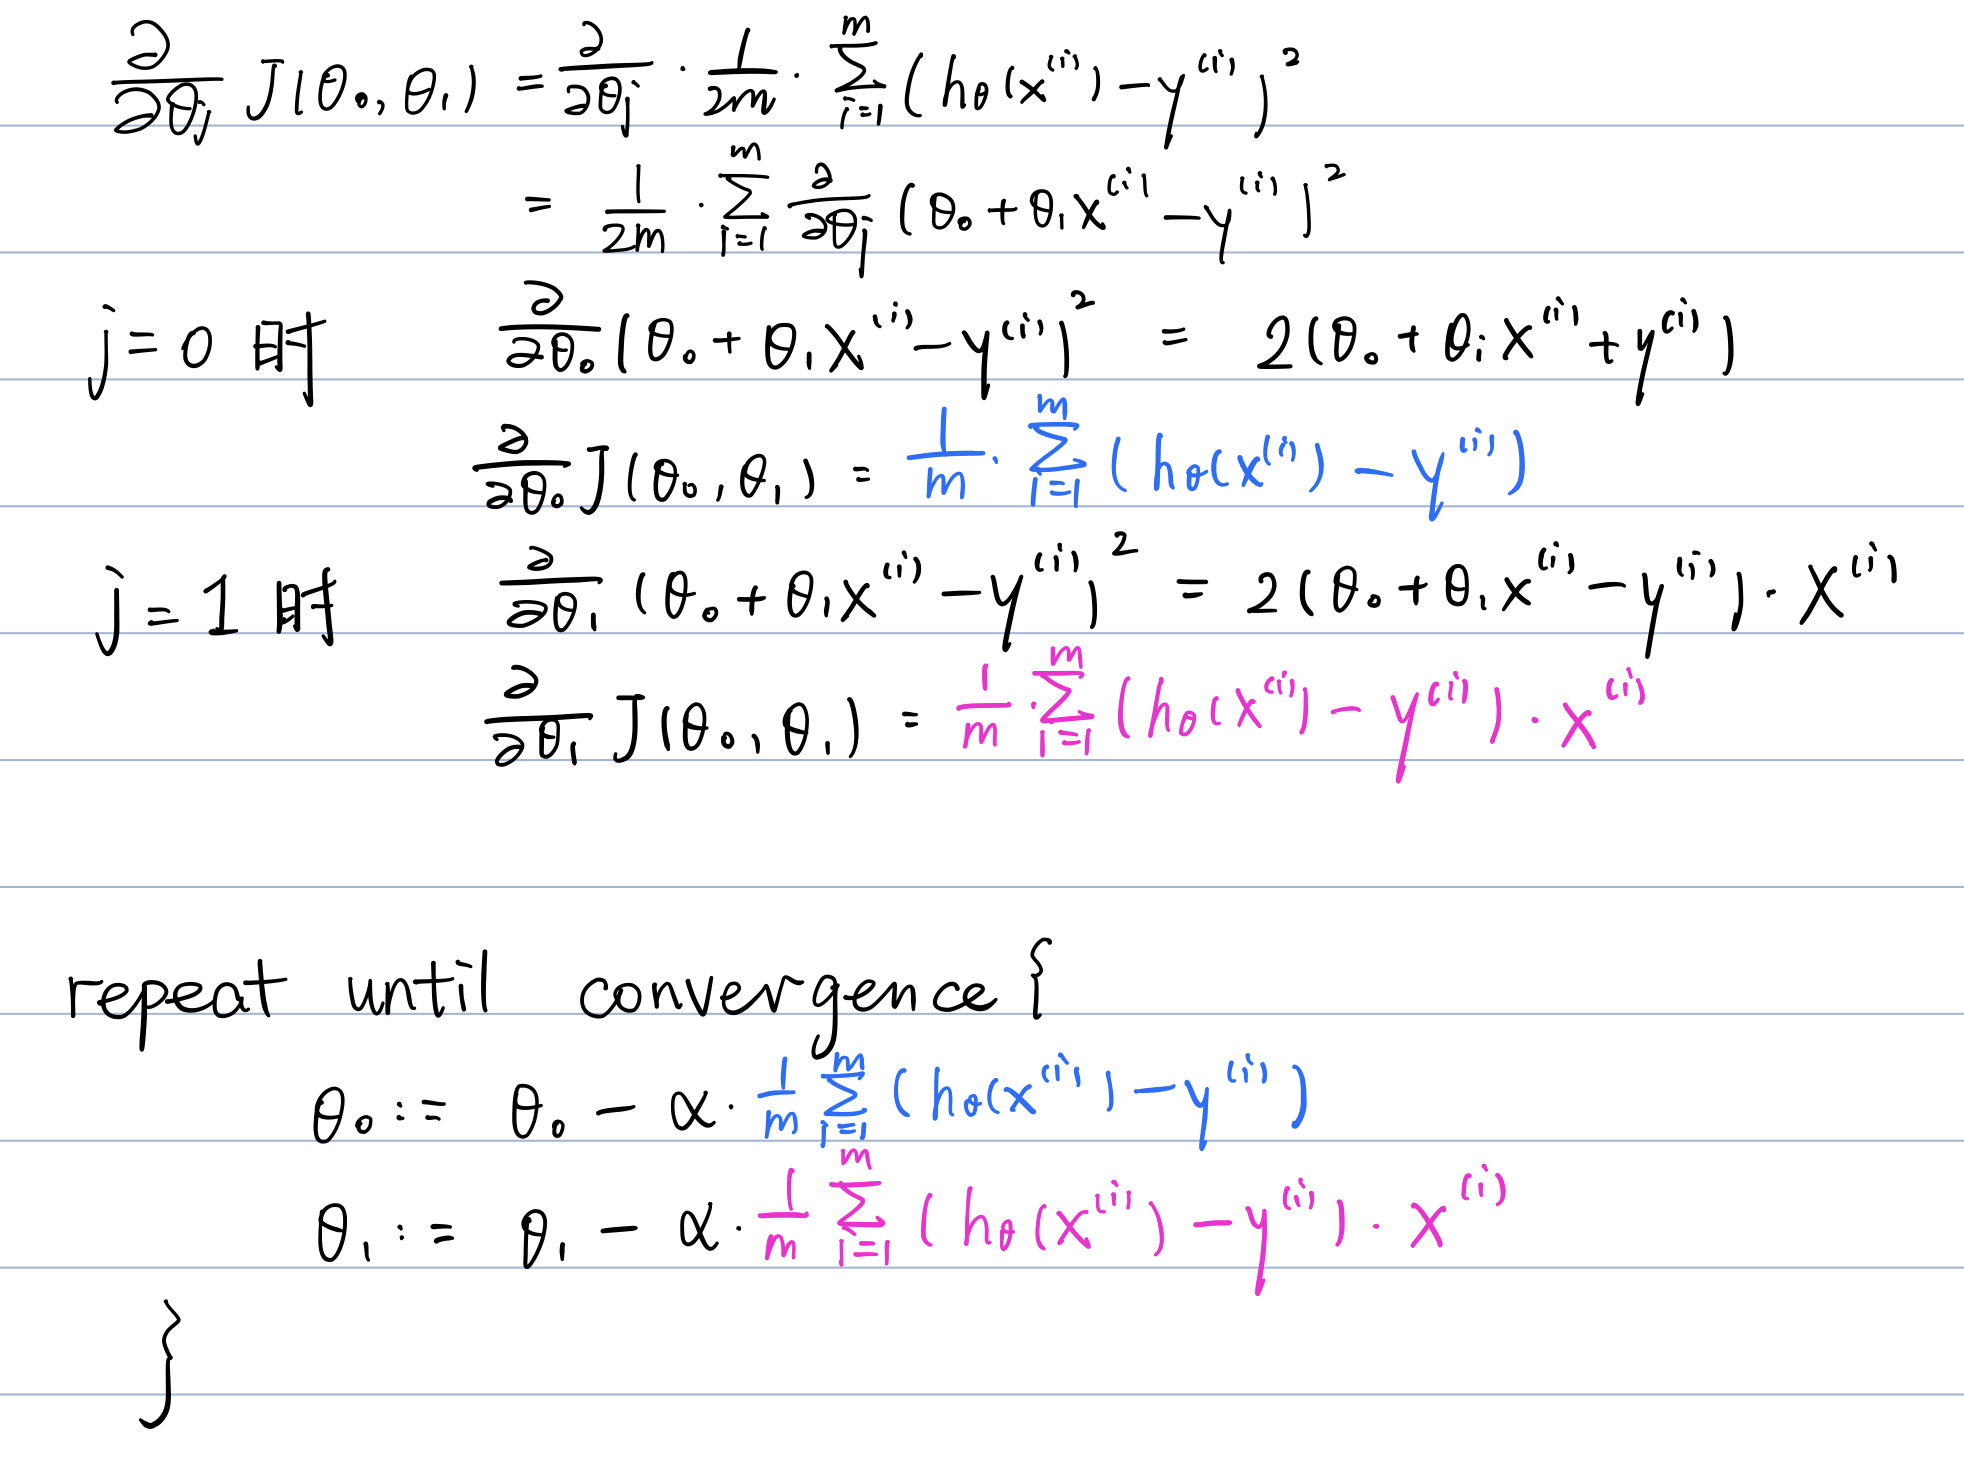 ∂/∂θⱼ J(θ₀, θ₁) = ∂/∂θⱼ · 1/2m · ∑ᵢ₌₁ᵐ (hθ(x⁽ⁱ⁾) − y⁽ⁱ⁾)²
= 1/2m · ∑ᵢ₌₁ᵐ ∂/∂θⱼ (θ₀ + θ₁x⁽ⁱ⁾ − y⁽ⁱ⁾)²
j = 0 时 ∂/∂θ₀ (θ₀ + θ₁x⁽ⁱ⁾ − y⁽ⁱ⁾)² = 2(θ₀ + θ₁x⁽ⁱ⁾ + y⁽ⁱ⁾)
∂/∂θ₀ J(θ₀, θ₁) = 1/m · ∑ᵢ₌₁ᵐ (hθ(x⁽ⁱ⁾) − y⁽ⁱ⁾)
j = 1 时 ∂/∂θ₁ (θ₀ + θ₁x⁽ⁱ⁾ − y⁽ⁱ⁾)² = 2(θ₀ + θ₁x⁽ⁱ⁾ − y⁽ⁱ⁾) · x⁽ⁱ⁾
∂/∂θ₁ J(θ₀, θ₁) = 1/m · ∑ᵢ₌₁ᵐ (hθ(x⁽ⁱ⁾) − y⁽ⁱ⁾) · x⁽ⁱ⁾
repeat until convergence {
θ₀ := θ₀ − α · 1/m ∑ᵢ₌₁ᵐ (hθ(x⁽ⁱ⁾) − y⁽ⁱ⁾)
θ₁ := θ₁ − α · 1/m ∑ᵢ₌₁ᵐ (hθ(x⁽ⁱ⁾) − y⁽ⁱ⁾) · x⁽ⁱ⁾
}